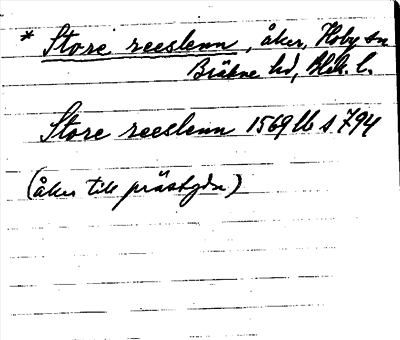 * Store reeslenn, åker, Hoby sn
Bräkne hd, Blek. l.
Store reeslenn 1569 lb s. 794
(åker till prästgdn)